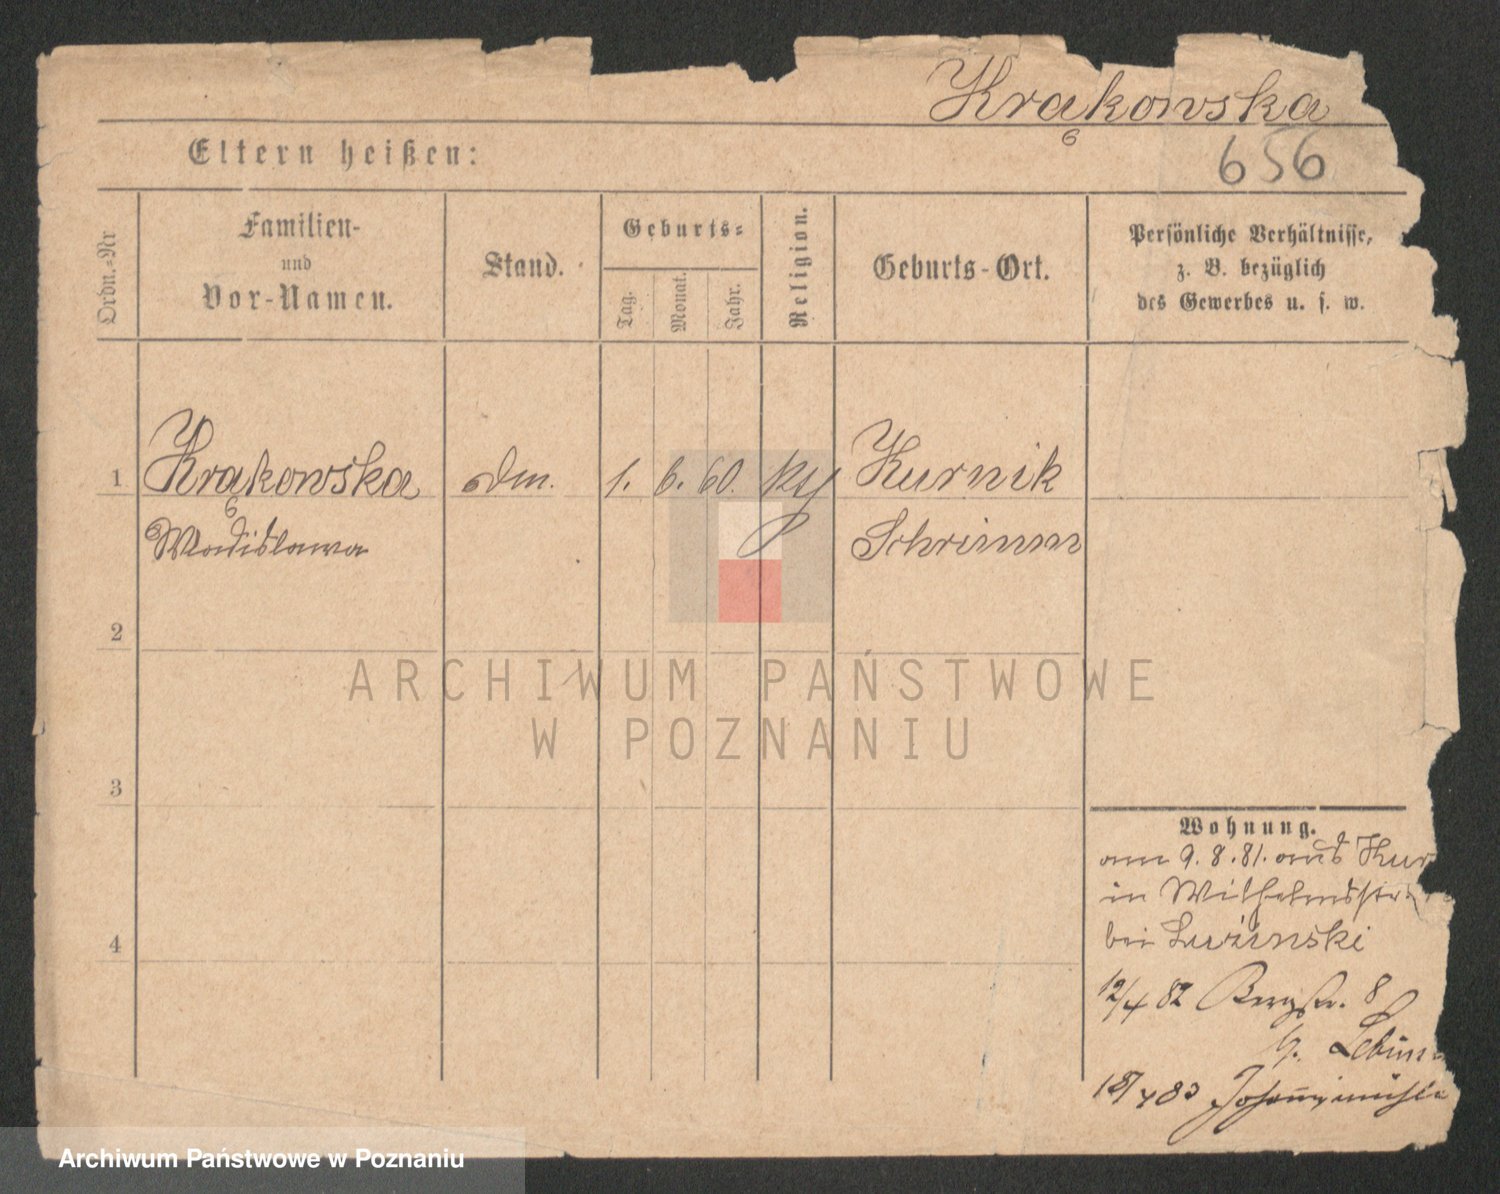 Krąkowska
656
Eltern heißen:
Ordn.-Nr
Familien-
und
Vor-Namen.
Stand.
Geburts-
Tag.
Monat.
Jahr.
Religion.
Geburts-Ort.
Persönliche Verhältnisse,
z. B. bezüglich
des Gewerbes u. s. w.
1 Krąkowska 1. 6. 60. Kurnik
Wladislawa Schrimm
2
3
4
ARCHIWUM PAŃSTWOWE
W POZNANIU
Wohnung.
am 9.8.81. aus Kur
in Wilhelmsstr.
bei
12/4 82 Bergstr. 8
b.
18/4 83
Archiwum Państwowe w Poznaniu